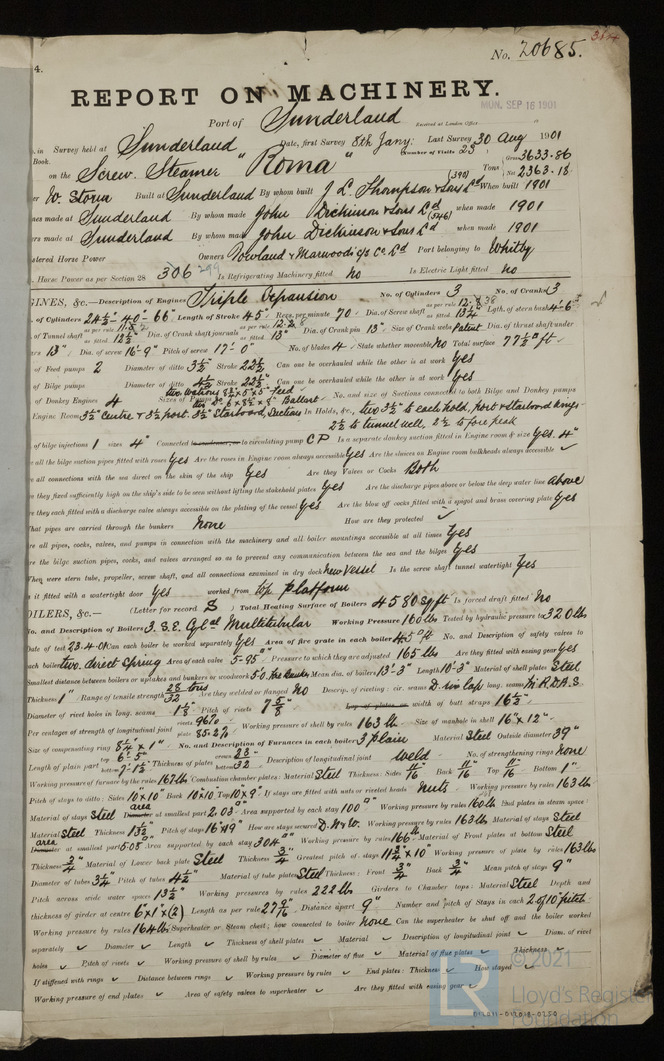 4.
314
No. 20685.
REPORT ON MACHINERY.
Port of Sunderland
Received at London Office MON. SEP 16 1901
in Survey held at Sunderland Date, first Survey 8th Jany: Last Survey 30 Aug 1901
Book. (Number of Visits 23
on the Screw Steamer "Roma" Tons Gross 3633.86 Net 2363.18
W. Storm Built at Sunderland By whom built J. L. Thompson & Sons Ld (390) When built 1901
nes made at Sunderland By whom made John Dickinson & Sons Ld (546) when made 1901
rs made at Sunderland By whom made John Dickinson & Sons Ld when made 1901
stered Horse Power Owners Rowland & Marwoods Port belonging to Whitby
. Horse Power as per Section 28 306 299 Is Refrigerating Machinery fitted No Is Electric Light fitted no
GINES, &c.—Description of Engines Triple Expansion No. of Cylinders 3 No. of Cranks 3
of Cylinders 24½"-40"-66" Length of Stroke 45" Revs. per minute 70 Dia. of Screw shaft as fitted 13¼" Lgth. of stern bush 4'-6"
of Tunnel shaft as fitted 12½" Dia. of Crank shaft journals as fitted 13" Dia. of Crank pin 13" Size of Crank webs Patent Dia. of thrust shaft under
ars 13" Dia. of screw 16'-9" Pitch of screw 17'-0" No. of blades 4 State whether moveable No Total surface 77½ ft
of Feed pumps 2 Diameter of ditto 3½" Stroke 22½" Can one be overhauled while the other is at work Yes
of Bilge pumps Diameter of ditto 4½" Stroke 22½" Can one be overhauled while the other is at work Yes
of Donkey Engines 4 Sizes of Pumps No. and size of Suctions connected to both Bilge and Donkey pumps
Engine Room 3½" Centre & 3½" port. 3½" Starboard, Suctions In Holds, &c., two 3½" to each hold, port & starboard wings.
2½ to tunnel well, 2½ to fore peak
of bilge injections 1 sizes 4" Connected to condenser, or to circulating pump CP Is a separate donkey suction fitted in Engine room & size Yes. 4"
all the bilge suction pipes fitted with roses Yes Are the roses in Engine room always accessible Yes Are the sluices on Engine room bulkheads always accessible ✓
all connections with the sea direct on the skin of the ship Yes Are they Valves or Cocks Both
they fixed sufficiently high on the ship's side to be seen without lifting the stokehold plates Yes Are the discharge pipes above or below the deep water line above
they each fitted with a discharge valve always accessible on the plating of the vessel Yes Are the blow off cocks fitted with a spigot and brass covering plate Yes
hat pipes are carried through the bunkers None How are they protected ✓
re all pipes, cocks, valves, and pumps in connection with the machinery and all boiler mountings accessible at all times Yes
re the bilge suction pipes, cocks, and valves arranged so as to prevent any communication between the sea and the bilges Yes
hen were stern tube, propeller, screw shaft, and all connections examined in dry dock New Vessel Is the screw shaft tunnel watertight Yes
s it fitted with a watertight door Yes worked from top platform
OILERS, &c.— (Letter for record S) Total Heating Surface of Boilers 4580 sq ft Is forced draft fitted No
No. and Description of Boilers 3. S.E. Cylal Multitubular Working Pressure 160 lbs Tested by hydraulic pressure to 320 lbs
Date of test 23.4.01 Can each boiler be worked separately Yes Area of fire grate in each boiler 45 ft No. and Description of safety valves to
each boiler two direct Spring Area of each valve 5.95" Pressure to which they are adjusted 165 lbs Are they fitted with easing gear Yes
Smallest distance between boilers or uptakes and bunkers or woodwork Mean dia. of boilers 13'-3" Length 10'-3" Material of shell plates Steel
Thickness 1" Range of tensile strength 28/32 tons Are they welded or flanged No Descrip. of riveting: cir. seams D. riv lap long. seams
Diameter of rivet holes in long. seams 1⅛" Pitch of rivets 7⅝" Lap of plates or width of butt straps 16½"
Per centages of strength of longitudinal joint rivets 96% plate 85.2% Working pressure of shell by rules 163 lb Size of manhole in shell 16" x 12"
Size of compensating ring 8¼" x 1" No. and Description of Furnaces in each boiler 3 plain Material Steel Outside diameter 39"
Length of plain part top 6'-5" bottom Thickness of plates Description of longitudinal joint weld No. of strengthening rings None
Working pressure of furnace by the rules 167 lbs Combustion chamber plates: Material Steel Thickness: Sides 11/16" Back 11/16" Top 11/16" Bottom 1"
Pitch of stays to ditto: Sides 10"x10" Back 10"x10" Top 10"x9" If stays are fitted with nuts or riveted heads Nuts Working pressure by rules 163 lb
Material of stays Steel area Diameter at smallest part 2.03" Area supported by each stay 100" Working pressure by rules 160 lb End plates in steam space:
Material Steel Thickness Pitch of stays 16"x19" How are stays secured D.N & W. Working pressure by rules 163 lbs Material of stays Steel
area Diameter at smallest part 5.08 Area supported by each stay 304" Working pressure by rules 166 lb Material of Front plates at bottom Steel
Thickness ¾" Material of Lower back plate Steel Thickness ¾" Greatest pitch of stays 11¾" x 10" Working pressure of plate by rules 163 lbs
Diameter of tubes 3¼" Pitch of tubes 4½" Material of tube plates Steel Thickness: Front ¾" Back ¾" Mean pitch of stays 9"
Pitch across wide water spaces 13½" Working pressures by rules 222 lbs Girders to Chamber tops: Material Steel Depth and
thickness of girder at centre 6"x1"x(2) Length as per rule 27 9/16" Distance apart 9" Number and pitch of Stays in each 2 of 10" pitch
Working pressure by rules 164 lb Superheater or Steam chest; how connected to boiler None Can the superheater be shut off and the boiler worked
separately ✓ Diameter ✓ Length ✓ Thickness of shell plates ✓ Material ✓ Description of longitudinal joint ✓ Diam. of rivet
holes ✓ Pitch of rivets ✓ Working pressure of shell by rules ✓ Diameter of flue ✓ Material of flue plates ✓ Thickness ✓
If stiffened with rings ✓ Distance between rings ✓ Working pressure by rules ✓ End plates: Thickness ✓ How stayed ✓
Working pressure of end plates ✓ Area of safety valves to superheater ✓ Are they fitted with easing gear ✓
LR
© 2021
Lloyd's Register
Foundation